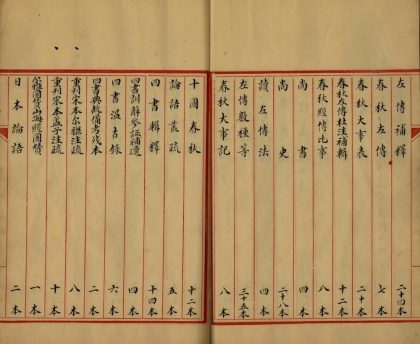 左傳補釋 二十四本
春秋左傳 七本
春秋大事表 二十本
春秋左傳杜注補輯 十二本
春秋經傳比事 八本
尚書 四本
尚史 二十八本
讀左傳法 四本
左傳數種等 三十五本
春秋大事記 八本
十國春秋 十二本
論語叢疏 五本
四書輯釋 十四本
四書訓解參証補遺 四本
四書溫古錄 六本
四書典故備考殘本 二本
重刊宋本爾雅注疏 八本
重刊宋本孟子注疏 十本
爾雅圖贊山海經圖贊 一本
日本論語 二本